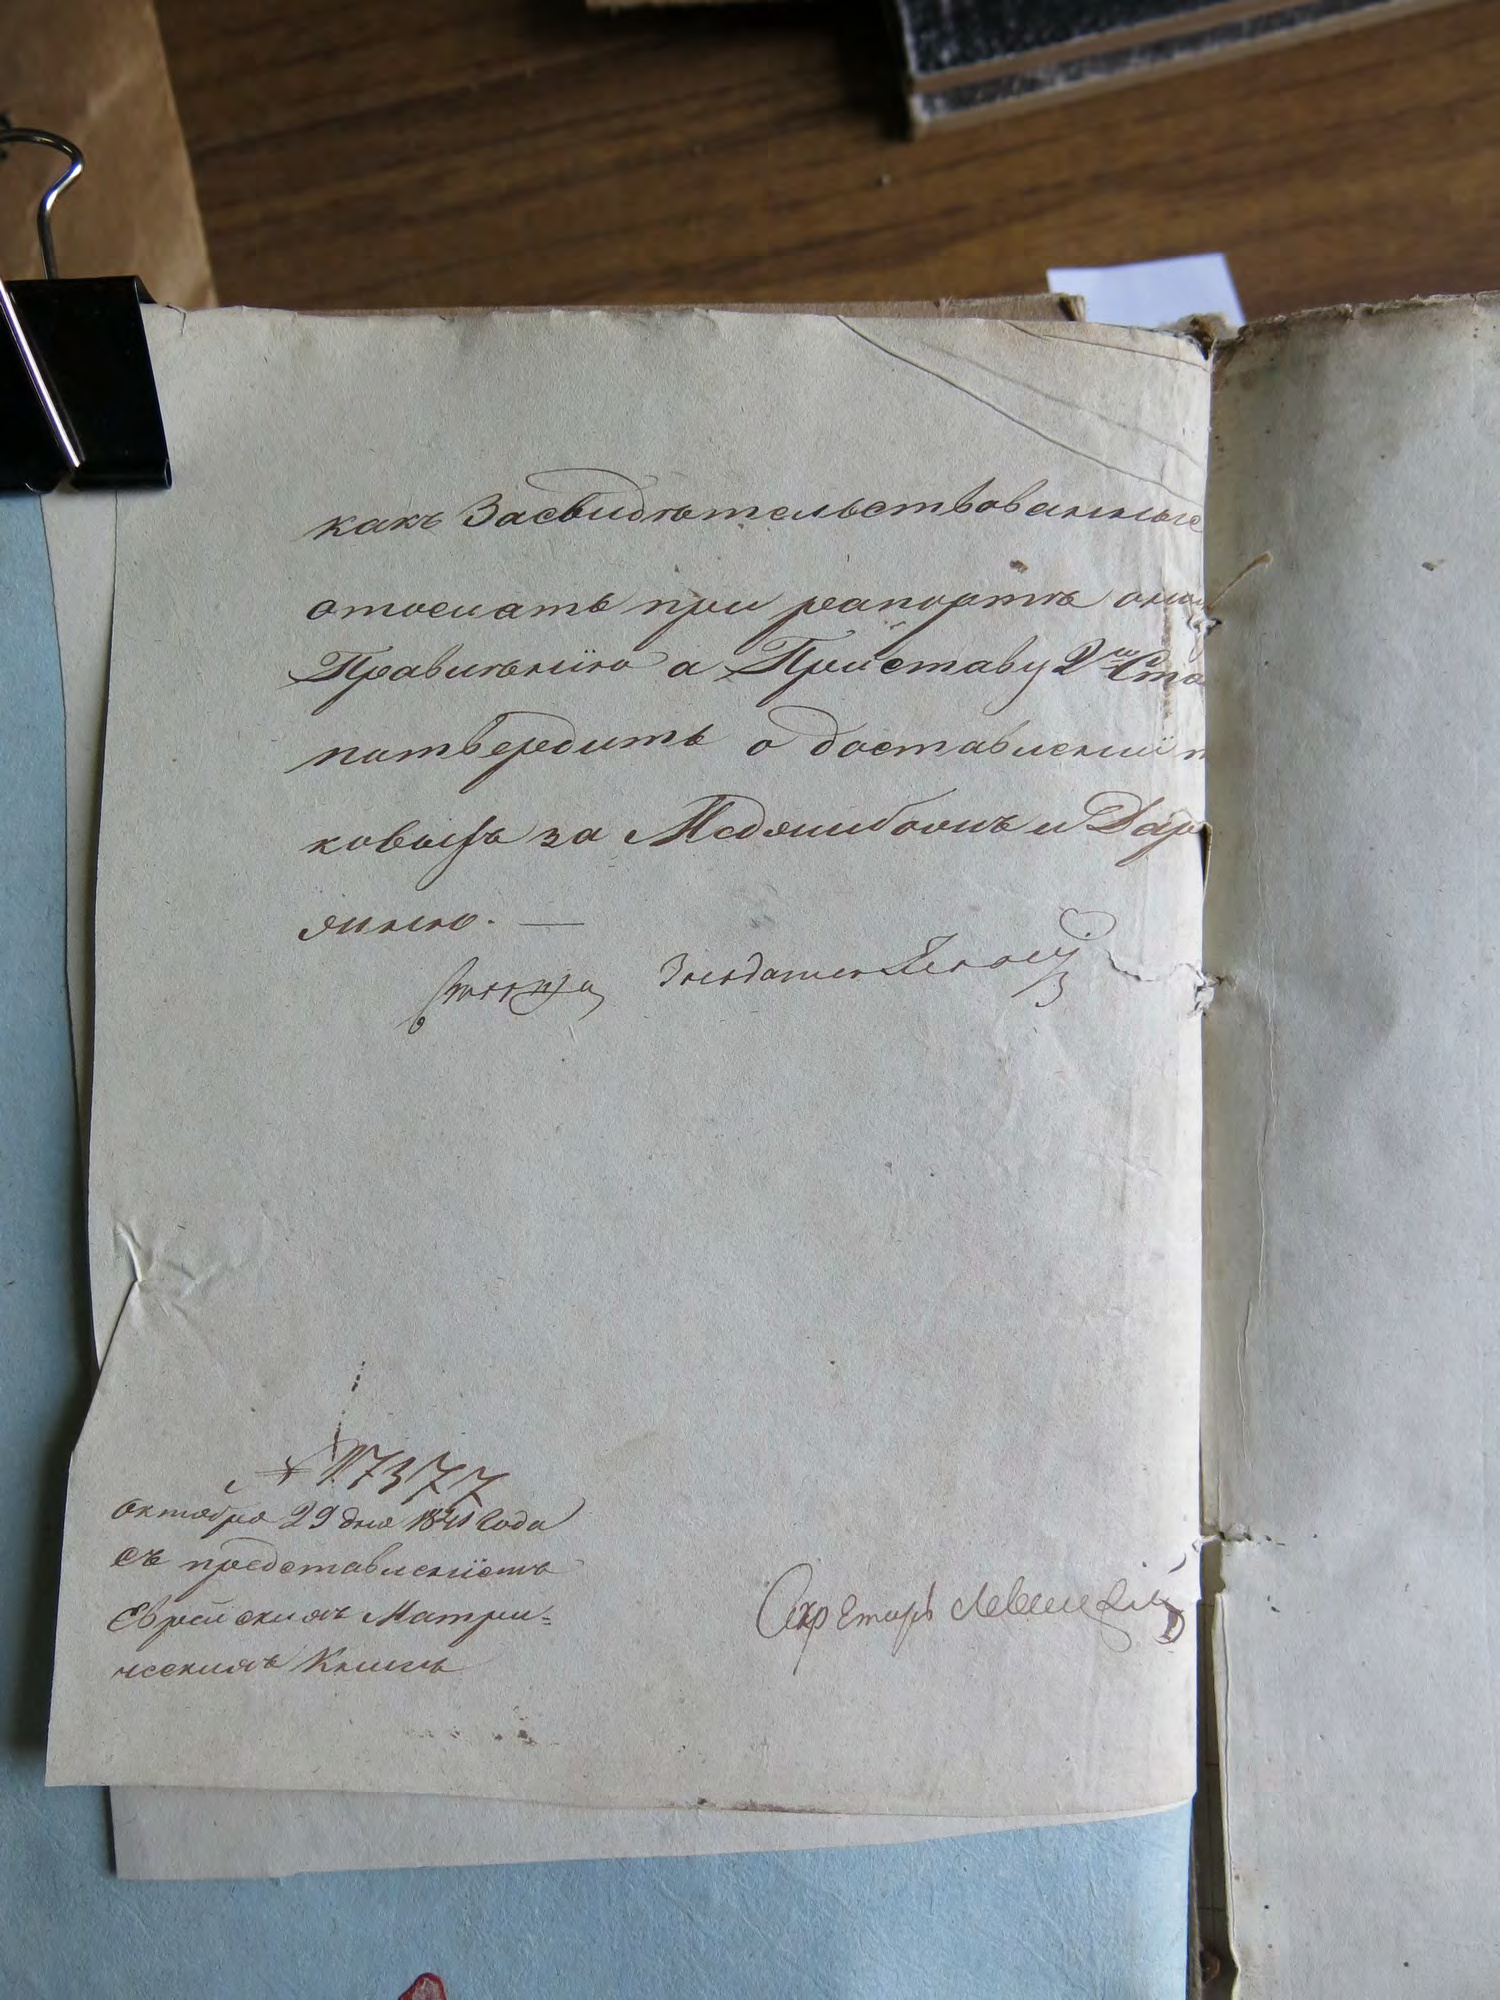 какъ Засвидѣтельствованные
отослать при рапортѣ оном
Правленію а Приставу 2го Ста
потвердить о доставленіи т
ковыхъ за Меджибожъ и Дар
Засѣдатель
№ 17377
октября 29 дня 1841 Года
съ представленіемъ
Еврейскихъ Матри=
ческихъ Книгъ
Секретарь Левицкій